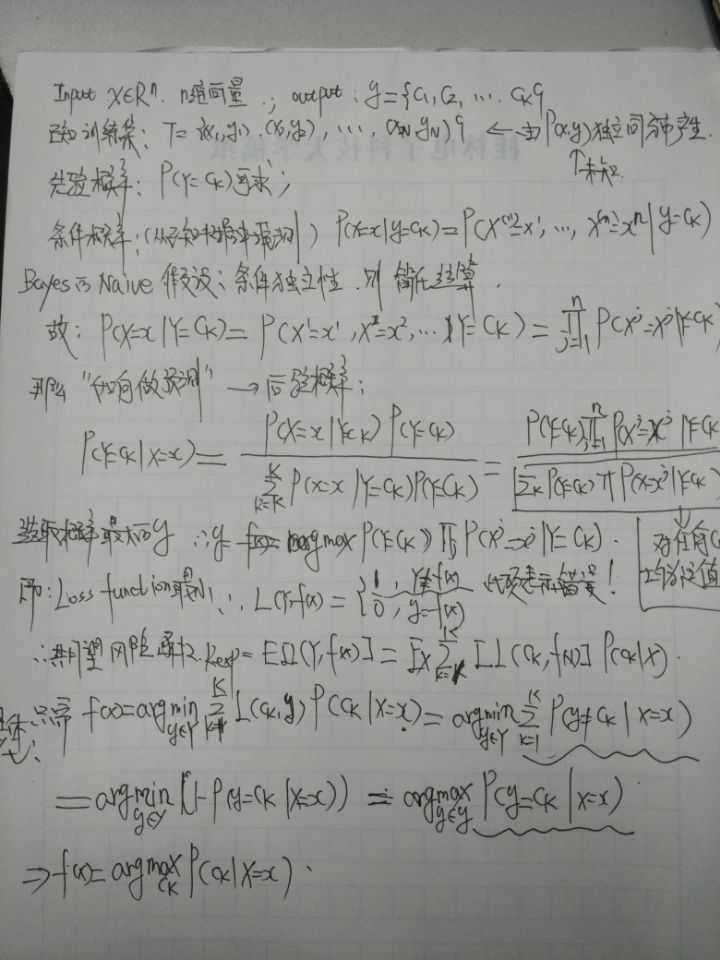 Input X∈Rⁿ. n维向量., output: y={C1, C2, … Ck}
已知训练集: T={(x1,y1),(x2,y2),…,(xN,yN)} ← 由P(x,y)独立同分布产生.
↑未知.
先验概率: P(Y=Ck)可求;
条件概率: P(X=x|y=Ck)=P(X⁽¹⁾=x¹,…, X⁽ⁿ⁾=xⁿ|y=Ck)
Bayes的Naive假设: 条件独立性. 则简化运算.
故: P(X=x|Y=Ck)= P(X¹=x¹,X²=x²,…|Y=Ck)= ∏_{j=1}^{n} P(X^j=x^j|Y=Ck)
那么"如何做预测" → 后验概率:
P(Y=Ck|X=x)= P(X=x|Y=Ck) P(Y=Ck) / Σ_{k=K}^{K} P(X=x|Y=Ck)P(Y=Ck) = P(Y=Ck)∏_{j=1}^{n} P(X^j=x^j|Y=Ck) / Σ_k P(Y=Ck) ∏ P(X=x^j|Y=Ck)
选取概率最大的y ∴y=f(x)= argmax P(Y=Ck) ∏_j P(X^j=x^j|Y=Ck).
对任何C
均为定值
即: Loss function最小 ∵ L(Y,f(x))= {1, Y≠f(x) 0, y=f(x) 此项表示错误!
∴期望风险函数. Rexp= E[L(Y,f(x))]= Ex Σ_{k=1}^{K} [L(Ck,f(x))] P(Ck|X).
只需 f(x)=argmin_{y∈Y} Σ_{k=1}^{K} L(Ck,y) P(Ck|X=x)= argmin_{y∈Y} Σ_{k=1}^{K} P(y≠Ck|X=x)
= argmin_{y∈Y} (1-P(y=Ck|X=x)) = argmax_{y∈y} P(y=Ck|X=x)
⇒ f(x)= argmax_{Ck} P(Ck|X=x).